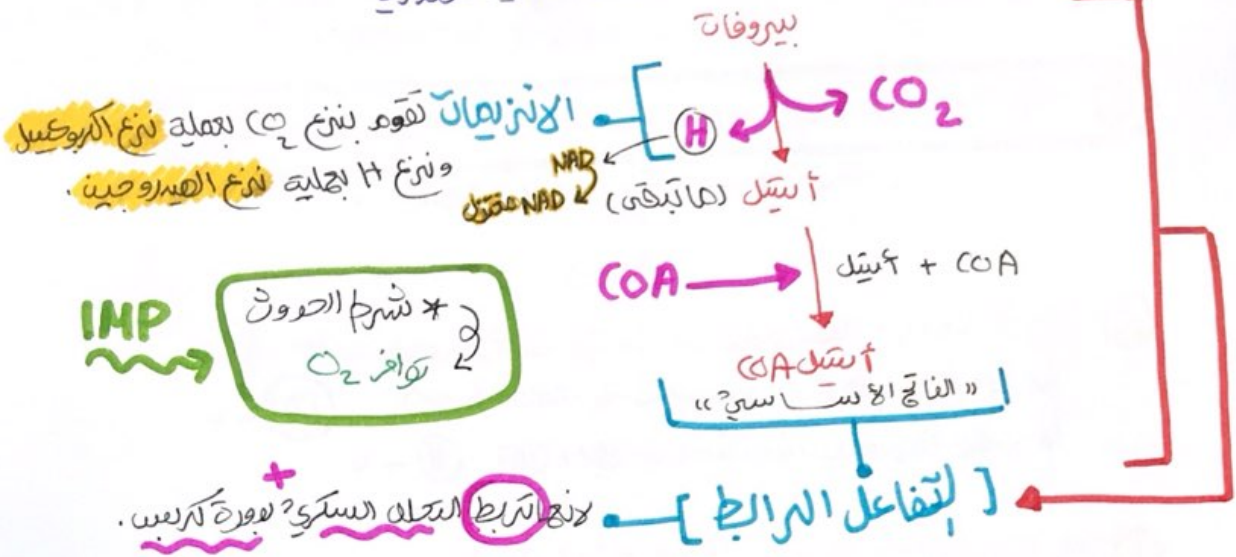 بيروفات
CO2
H
الانزيمات تقوم بنزع CO2 بعملية نزع الكربوكسيل
ونزع H بعملية نزع الهيدروجين.
NAD
NAD مختزل
أستيل (ما تبقى)
COA
أستيل + COA
أستيل COA
"الناتج الأساسي"
IMP
* شرط الحدوث
توافر O2
[التفاعل الرابط]
لانها تربط التحلل السكري + بدورة كربس.